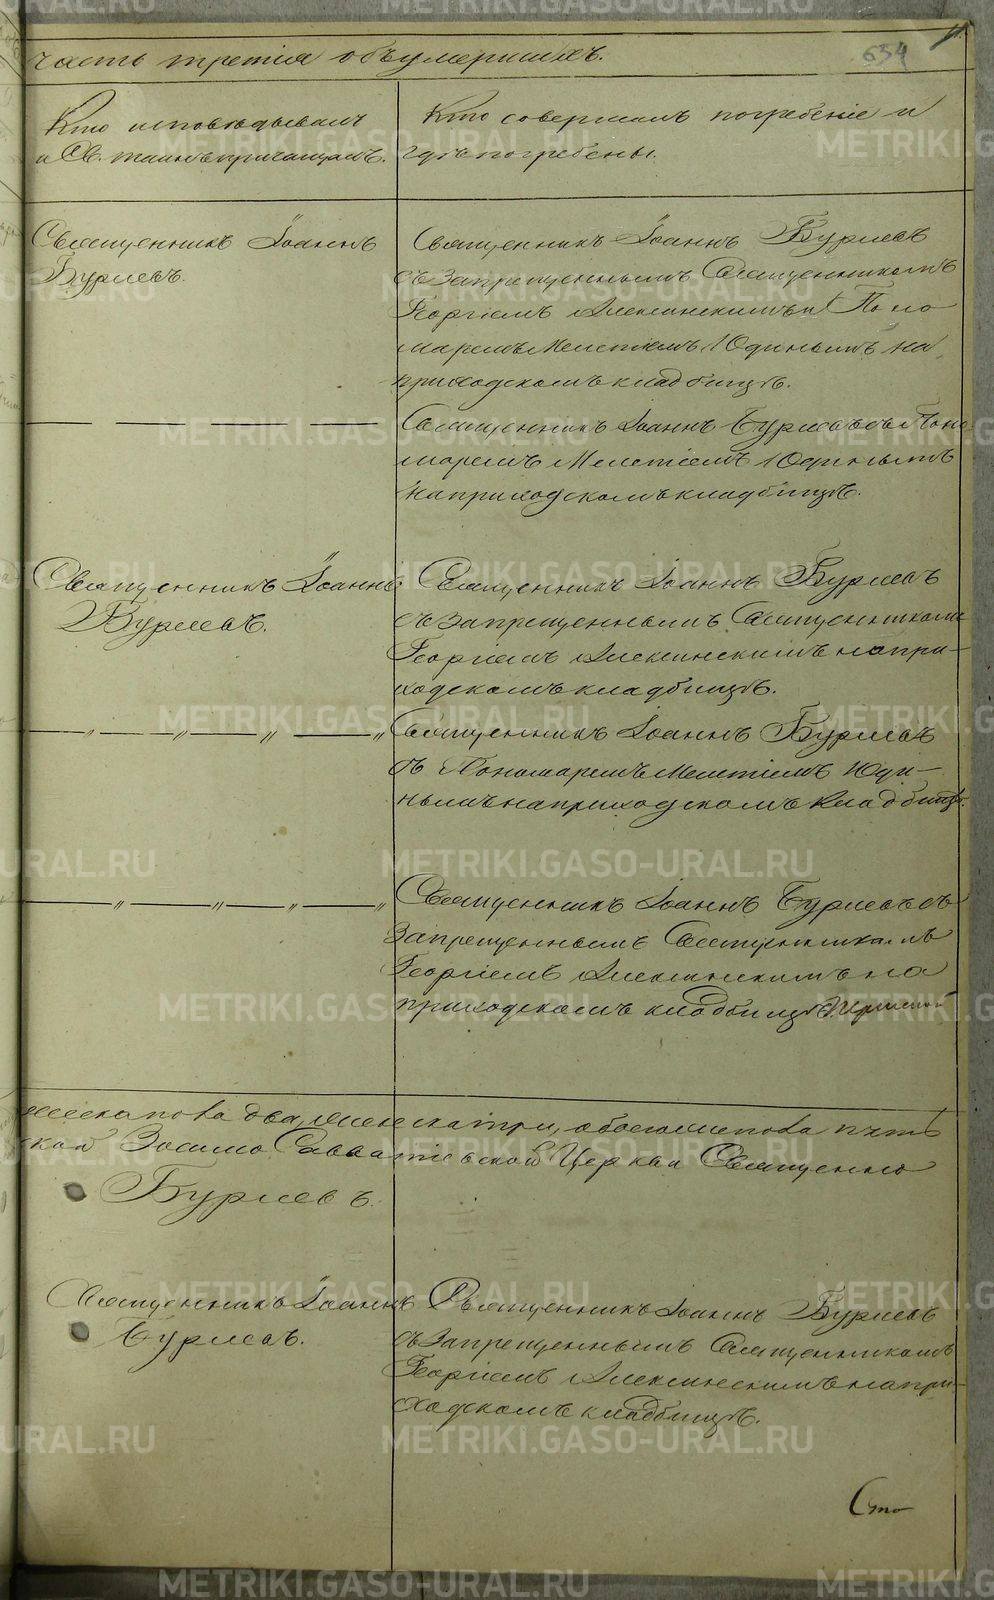 634
часть третія объ умершихъ.
Кто исповѣдывалъ
и Св. таинъ причащалъ.
Кто совершалъ погребеніе и
гдѣ погребены.
Священникъ Іоаннъ
Бурлевъ.
Священникъ Іоаннъ Бурлевъ
съ запрещеннымъ Священникомъ
Георгіемъ Алексинскимъ и Поно
маремъ Мелетіемъ Юдинымъ на
приходскомъ кладбищѣ.
Священникъ Іоаннъ Бурлевъ съ Поно
маремъ Мелетіемъ Юдинымъ
на приходскомъ кладбищѣ.
Священникъ Іоаннъ
Бурлевъ.
Священникъ Іоаннъ Бурлевъ
съ запрещеннымъ Священникомъ
Георгіемъ Алексинскимъ на при-
ходскомъ кладбищѣ.
Священникъ Іоаннъ Бурлевъ
съ Пономаремъ Мелетіемъ Юди-
нымъ на приходскомъ кладбищѣ.
Священникъ Іоаннъ Бурлевъ съ
запрещеннымъ Священникомъ
Георгіемъ Алексинскимъ на
приходскомъ кладбищѣ.
жеска пола два, женска три, обоего пола пять
ской Зосимо Савватіевской Церкви Священно
Бурлевъ.
Священникъ Іоаннъ
Бурлевъ.
Священникъ Іоаннъ Бурлевъ
съ запрещеннымъ Священникомъ
Георгіемъ Алексинскимъ на при-
ходскомъ кладбищѣ.
Сто
METRIKI.GASO-URAL.RU